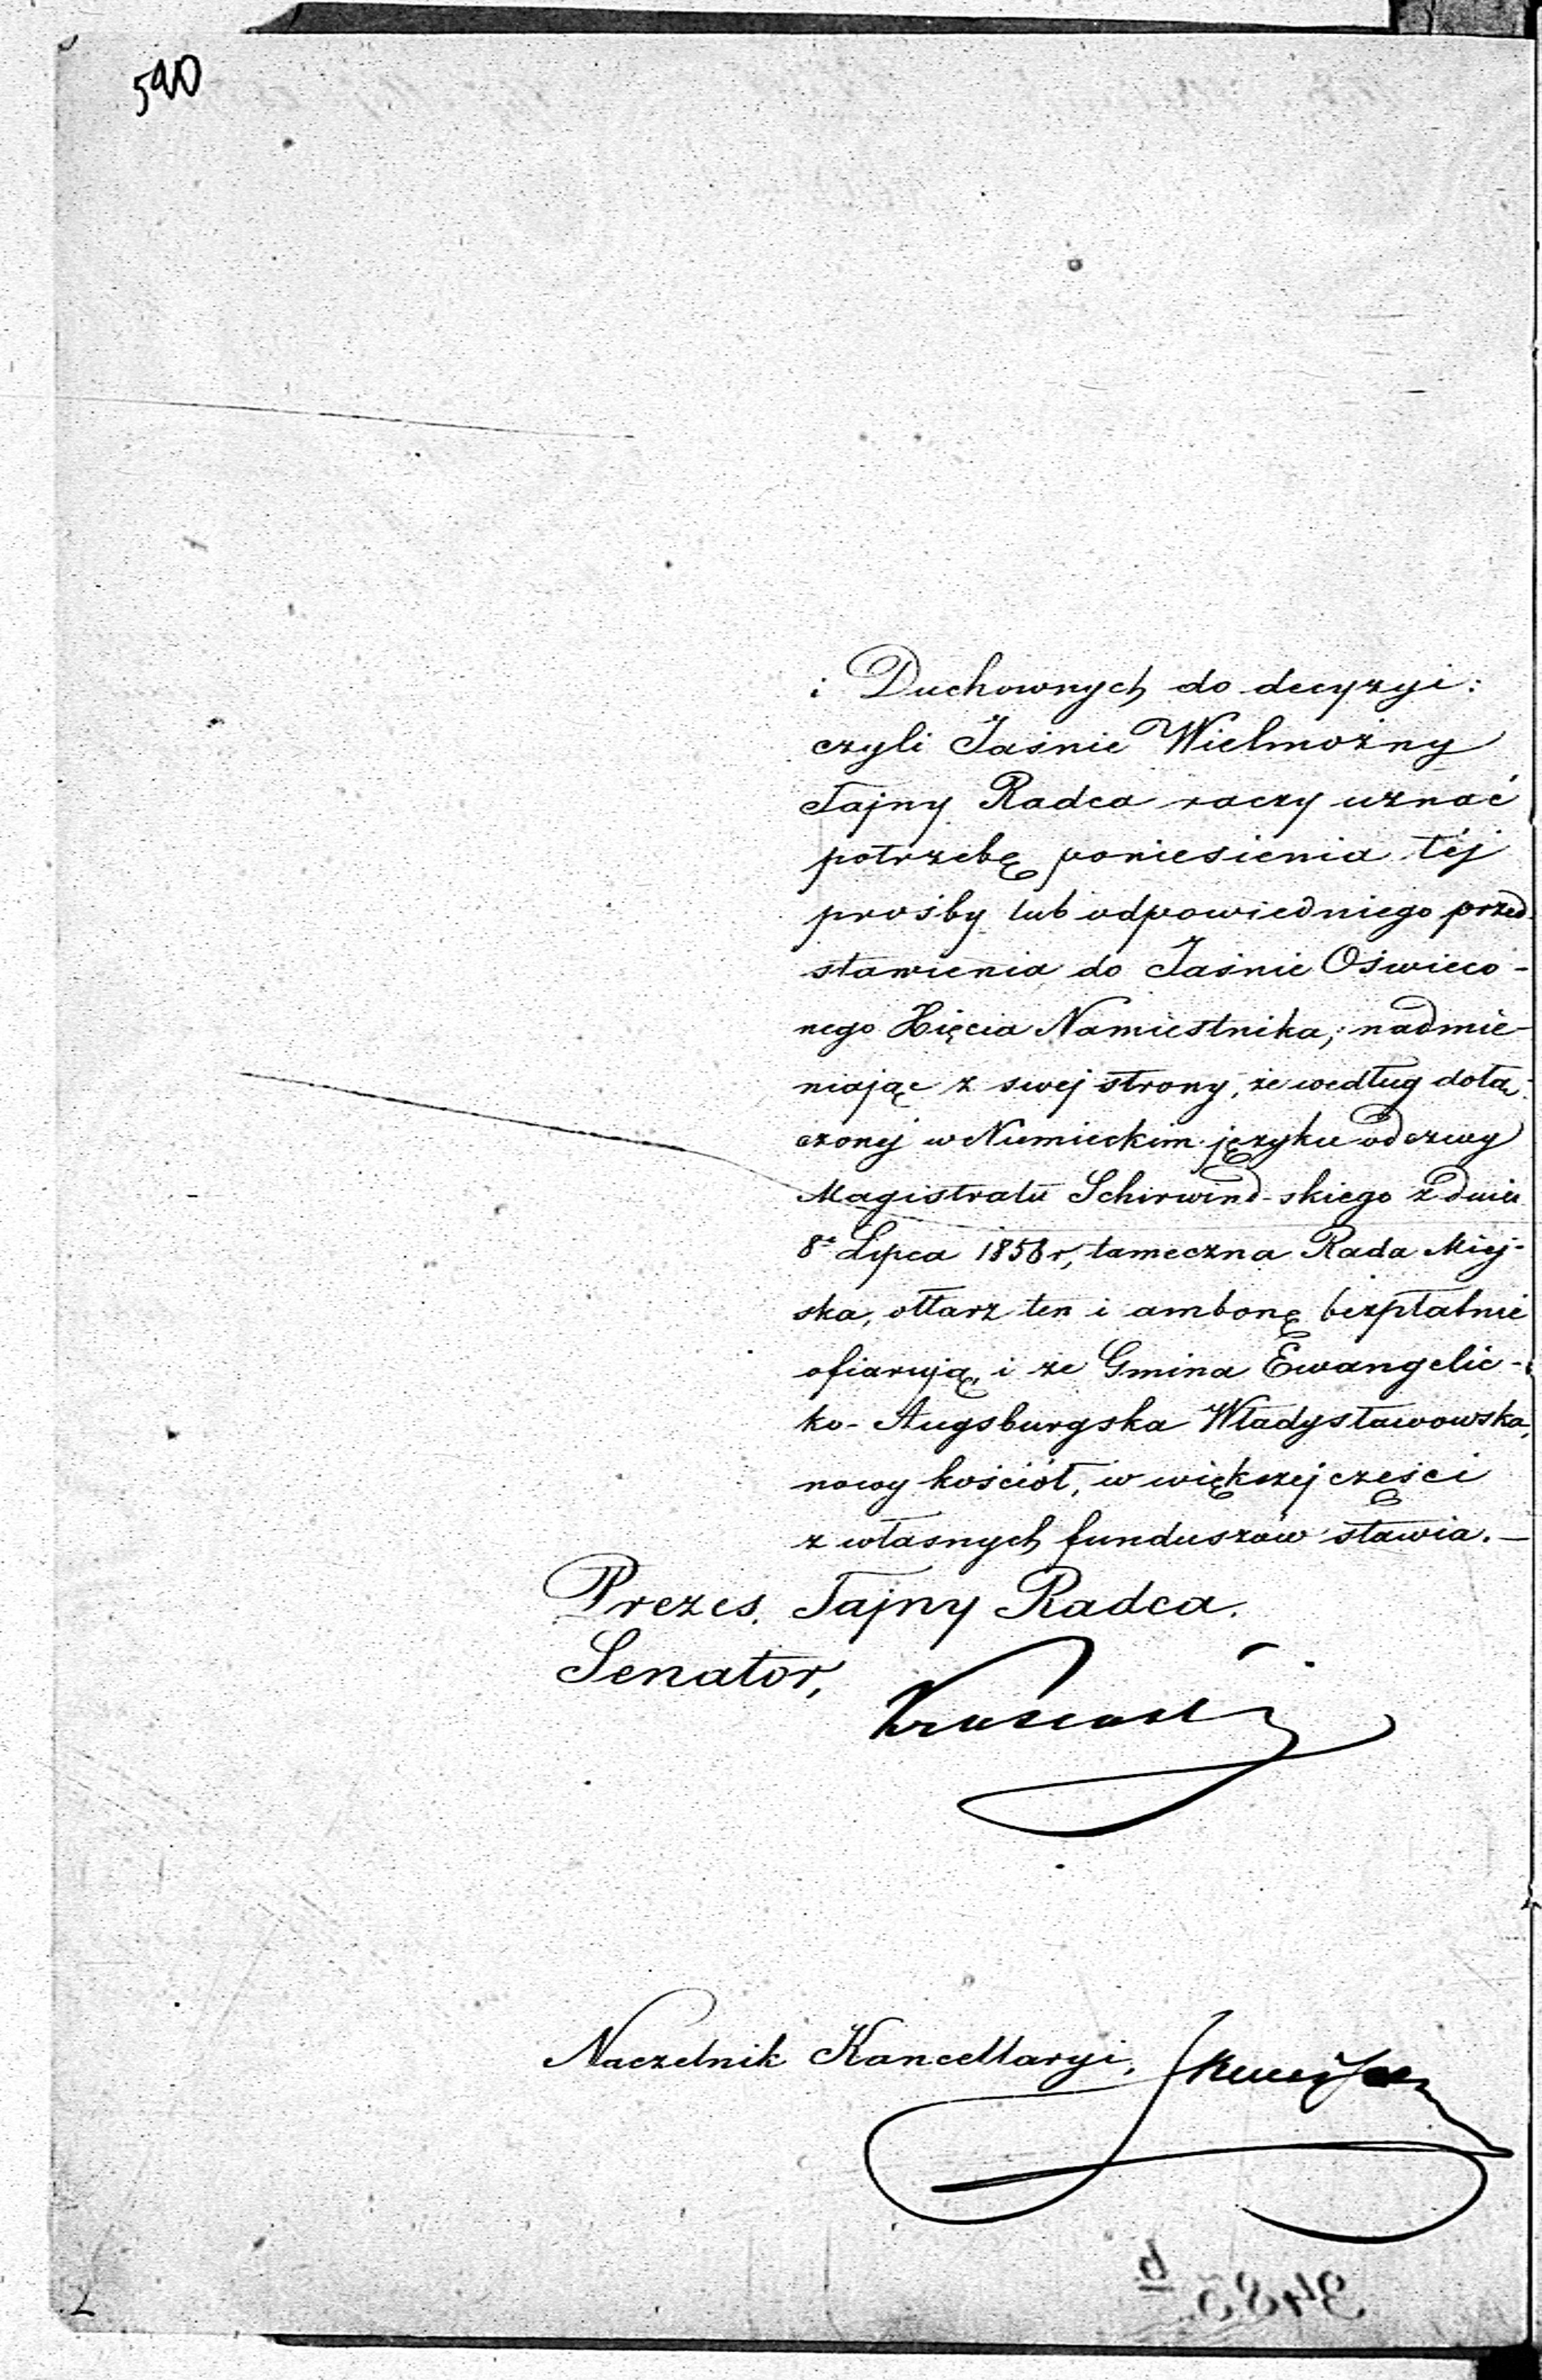 590
i Duchownych do decyzyi:
czyli Jaśnie Wielmożny
Tajny Radca raczy uznać
potrzebę poniesienia téj
prośby lub odpowiedniego przed-
stawienia do Jaśnie Oświeco-
nego Xięcia Namiestnika; nadmie-
niając z swej strony, że według dołą-
czonej w Niemieckim języku odezwy
Magistratu Schirwind-skiego z dnia
8º Lipca 1858 r, tameczna Rada Miej-
ska, ołtarz ten i ambonę bezpłatnie
ofiarują, i że Gmina Ewangelic-
ko-Augsburgska Władysławowska,
nowy kościół, w większej części
z własnych funduszów stawia.—
Prezes, Tajny Radca.
Senator,
Naczelnik Kancellaryi,
3485 b